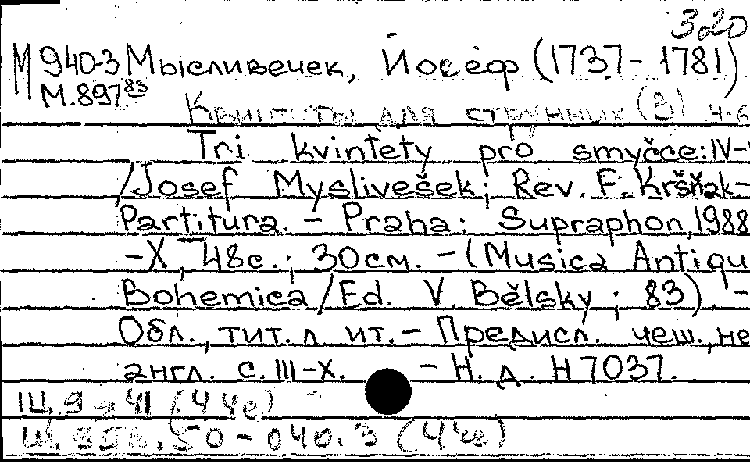 320
М 940-3 Мысливечек, Йосеф (1737-1781)
М.897 83
Квинтеты для струнных (3)
Tri kvintety pro smyčce: IV-
/Josef Myslivešek; Rev. F. Kršňak-
Partitura. - Praha: Supraphon, 1988
-X, 48с.; 30см. - (Musica Antiqu
Bohemica / Ed. V. Bělsky ; 83) -
Обл., тит. л. ит. - Предисл. чеш., не
англ. с. III-X. - Н. д. H 7037.
Ш.9 - 41 (44е)
Ш. 50 - 040.3 (44е)